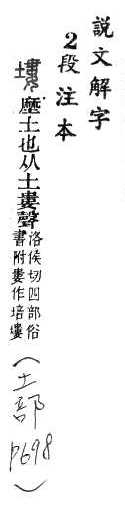 說文解字
2段注本
塿 塺土也从土婁聲
洛侯切四部俗
書附婁作培塿
(土部 p698)